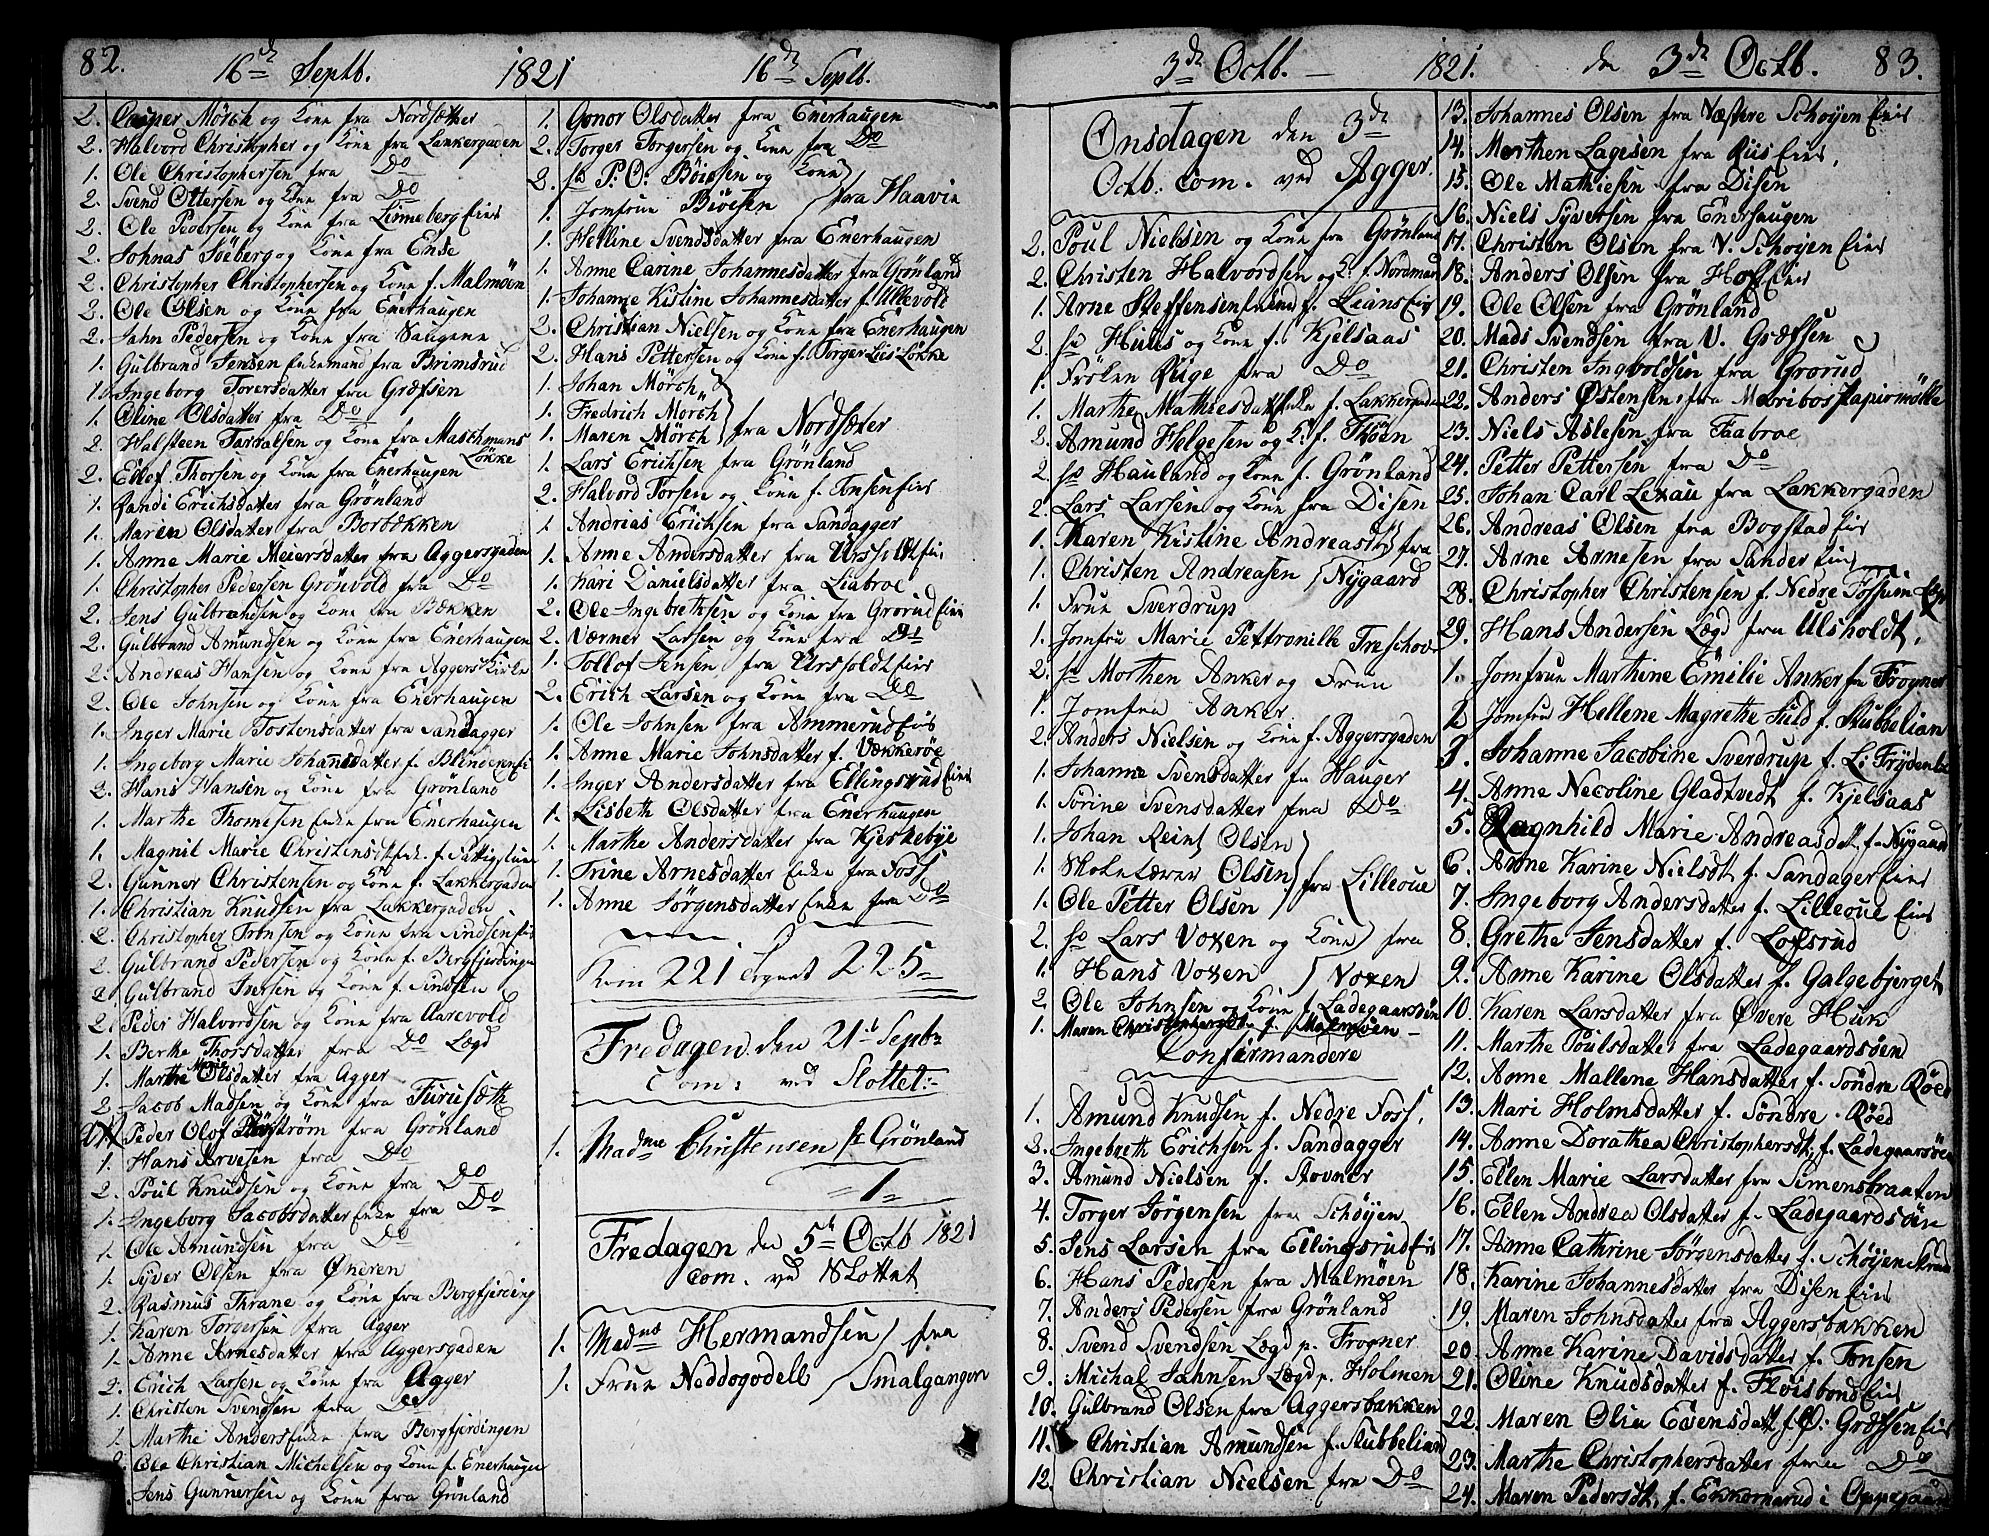 82.
16de Septb.
1821
16de Septb.
2. Casper Mörch og Kone fra Nordsæther
2. Halvord Christopher og Kone fra Lakkergaden
1. Ole Christophersen fra Do
2. Svend Ottersen og Kone fra Do
2. Ole Pedersen og Kone fra Linneberg Eier
2. Johnas Söeberg og Kone fra Ense
2. Christopher Christophersen og Kone f. Malmöen
2. Ole Olsen og Kone fra Enerhaugen
2. Jahn Pedersen og Kone fra Haugene
1. Gulbrand Jensen Enkemand fra Brimsrud
1. Ingeborg Toversdatter fra Græfsen
1. Oline Olsdatter fra Do
2. Halsteen Tarralsen og Kone fra Maschmans Løkke
2. Ellef Thorsen og Kone fra Enerhaugen
1. Randi Erichsdatter fra Grönland
1. Maren Olsdatter fra Borbækken
1. Anne Marie Meiersdatter fra Aggersgaden
1. Christopher Pedersen Grönvold fra Do
2. Jens Gulbrandsen og Kone fra Bækken
2. Gulbrand Amundsen og Kone fra Enerhaugen
2. Andreas Hansen og Kone fra Aggers Kirke
2. Ole Johnsen og Kone fra Enerhaugen
1. Inger Marie Tostensdatter fra Sandagger
1. Ingeborg Marie Johansdatter fr. Blinderen Ei
2. Hans Hansen og Kone fra Grönland
1. Marthe Thomesen Enke fra Enerhaugen
1. Magnil Marie Christensdt Enk. f. Fattighuus
2. Gunner Christensen og Kone f. Lakkergaden
1. Christian Knudsen fra Lakkergaden
2. Christopher Trönsen og Kone fra Sindsen Eie
2. Gulbrand Pedersen og Kone f. Bergfjerdingen
2. Gulbrand Iversen og Kone f. Sindsen
2. Peder Halvordsen og Kone fra Aarevold
1. Berthe Thorsdatter fra Do Lægd
1. Marthe Marie Olsdatter fra Agger
2. Jacob Madsen og Kone fra Furuseth
Peder Olof ström fra Grönland
1. Hans Arvesen fra Do
2. Poul Knudsen og Kone fra Do
1. Ingeborg Jacobsdatter Enke fra Do
1. Ole Amundsen fra Do
1. Syver Olsen fra Öneren
2. Rasmus Thrane og Kone fra Bergfjerding
1. Karen Torgersen fra Agger
1. Anne Arnesdatter fra Aggersgaden
2. Erich Larsen og Kone fra Agger
1. Christen Svendsen fra Do
1. Marthe Anders Enke fra Bergfjerdingen
2. Ole Christian Michelsen og Kone f. Enerhaugen
Jens Gunnersen og Kone fra Grönland
1. Gonor Olsdatter fra Enerhaugen
2. Torger Torgersen og Kone fra Do
2. Hr P. O. Böiesen og Kone
1. Jomfrue Böiesen } fra Haavie
1. Helline Svendsdatter fra Enerhaugen
1. Anne Carine Johannesdatter fra Grönland
1. Johanne Kistine Johannesdatter f. Ullevold
2. Christian Nielsen og Kone fra Enerhaugen
2. Hans Pettersen og Kone f. Torger Lies Løkke
1. Johan Mörch
1. Fredrich Mörch
1. Maren Mörch } fra Nordsæter
1. Lars Erichsen fra Grönland
2. Halvord Torsen og Kone f. Tonsen Eier
1. Andrias Erichsen fra Sandagger
1. Anne Andersdatter fra Ursholdt Eie
1. Kari Danielsdatter fra Liabroe
2. Ole Ingebrethsen og Kone fra Grorud Eier
2. Værner Larsen og Kone fra Do
1. Tollof Jensen fra Ursholdt Eier
2. Erich Larsen og Kone fra Do
1. Ole Johnsen fra Ammerud Eie
1. Anne Marie Johnsdatter f. Vækkeröe
1. Inger Andersdatter fra Ellingsrud Eier
1. Lisbeth Olsdatter fra Enerhaugen
1. Marthe Andersdatter fra Kjerkebye
1. Trine Arnesdatter Enke fra Foss
1. Anne Jörgensdatter Enke fra Do
Kom 221 tegnet 225
Fredagen den 21de Septb
Com: ved Slottet:
1. Madme Christensen fr Grönland
1
Fredagen den 5te Octb 1821
com. ved Slottet
1. Madme Hermandsen } fra
1. Frue Naddogodell } Smalgangen
3de Octb.
1821.
den 3de Octb.
83.
Onsdagen den 3de
Octb. Com. ved Agger.
2. Poul Nielsen og Kone fra Grönland
2. Christen Halvordsen og K. f. Nordmand
1. Arne Steffensen f. Lians Eie
2. Hr Huus og Kone f. Kjelsaas
1. Fröken Ruge fra Do
1. Marthe Mathiesdatt Enke f. Lakkergaden
2. Amund Helgesen og K. f. Thøen
2. Hr Hauland og Kone f. Grönland
2. Lars Larsen og Kone fra Disen
1. Maren Kistine Andreasdtr } fra
1. Christen Andreasen } Nygaard
1. Frue Sverdrup
1. Jomfru Marie Pettronille Treschov
2. Hr Morthen Anker og Frue
1. Jomfru Anker
2. Anders Nielsen og Kone f. Aggersgaden
1. Johanne Svensdatter fra Hauger
1. Sörine Svensdatter fra Do
1. Johan Reint Olsen
1. Skolelærer Olsen } fra Lilleoue
1. Ole Petter Olsen
2. Hr Lars Voxen og Kone } fra
1. Hans Voxen } Voxen
2. Ole Johnsen og Kone f. Ladegaarsöen
1. Maren Christophersdt f. Malmöen
Confirmandere
1. Amund Knudsen f. Nedre Foss,
2. Ingebreth Erichsen f. Sandagger
3. Amund Nielsen f. Stovner
4. Torger Jörgensen fra Schöyen
5. Jens Larsen fra Ellingsrud Eie
6. Hans Pedersen fra Malmöen
7. Anders Pedersen fra Grönland
8. Svend Svendsen Lægd p. Frogner
9. Michal Jahnsen Lægd p. Holmen
10. Gulbrand Olsen fra Aggersbakken
11. Christian Amundsen f. Stubbelian
12. Christian Nielsen fra Do
13. Johannes Olsen fra Væstere Schöyen Eier
14. Morthen Lagesen fra Riis Eier,
15. Ole Mathiesen fra Disen
16. Niels Syversen fra Enerhaugen
17. Christen Olsen fra V. Schöyen Eier
18. Anders Olsen fra Hoff Eier
19. Ole Olsen fra Grönland
20. Mads Svendsen fra V. Græfsen
21. Christen Ingvoldsen fra Grorud
22. Anders Östensen, fra Maribos Papiermölle
23. Niels Aslesen fra Faabroe
24. Petter Pettersen fra Do
25. Johan Carl Lexau fra Lakkergaden
26. Andreas Olsen fra Bogstad Eie
27. Arne Arnesen fra Sander Eier
28. Christopher Christensen f. Nedre Fossum Eje
29. Hans Andersen Lægd fra Ulsholdt,
1. Jomfrue Marthine Emilie Anker fra Frogner
2 Jomfru Hellene Magrethe Juld f. Stubbelian
3. Johanne Jacobine Sverdrup f. L. Frydenlu
4. Anne Necoline Gladtvedt f. Kjelsaas
5. Ragnhild Marie Andreasdt. f. Nygaard
6. Anne Karine Nielsdt f. Sandager Eier
7. Ingeborg Andersdatter f. Lilleoue Eier
8. Grethe Jensdatter f. Lofsrud
9. Anne Karine Olsdatter f. Galgebjerget
10. Karen Larsdatter fra Övere Huk
11. Marthe Poulsdatter fra Ladegaardsöen
12. Anne Mallene Hansdatter f. Söndre Röed
13. Mari Holmsdatter f. Söndre Röed
14. Anne Dorathea Christophersdt. f. Ladegaarsöen
15. Ellen Marie Larsdatter fra Simensbraaten
16. Ellen Andrea Olsdatter f. Ladegaardsöen
17. Anne Cathrine Jörgensdatter f. Schöyen
18. Karine Johannesdatter fra Disen Eier
19. Maren Johnsdatter fra Aggersbakken
20. Anne Karine Davidsdatter f. Tonsen
21. Oline Knudsdatter f. Flöisbond Eier
22. Maren Olia Evensdatt f. Ö: Græfsen Eie
23. Marthe Christophersdatter fra Do
24. Maren Pedersdt. f. Ekkornerud i Oppegaard